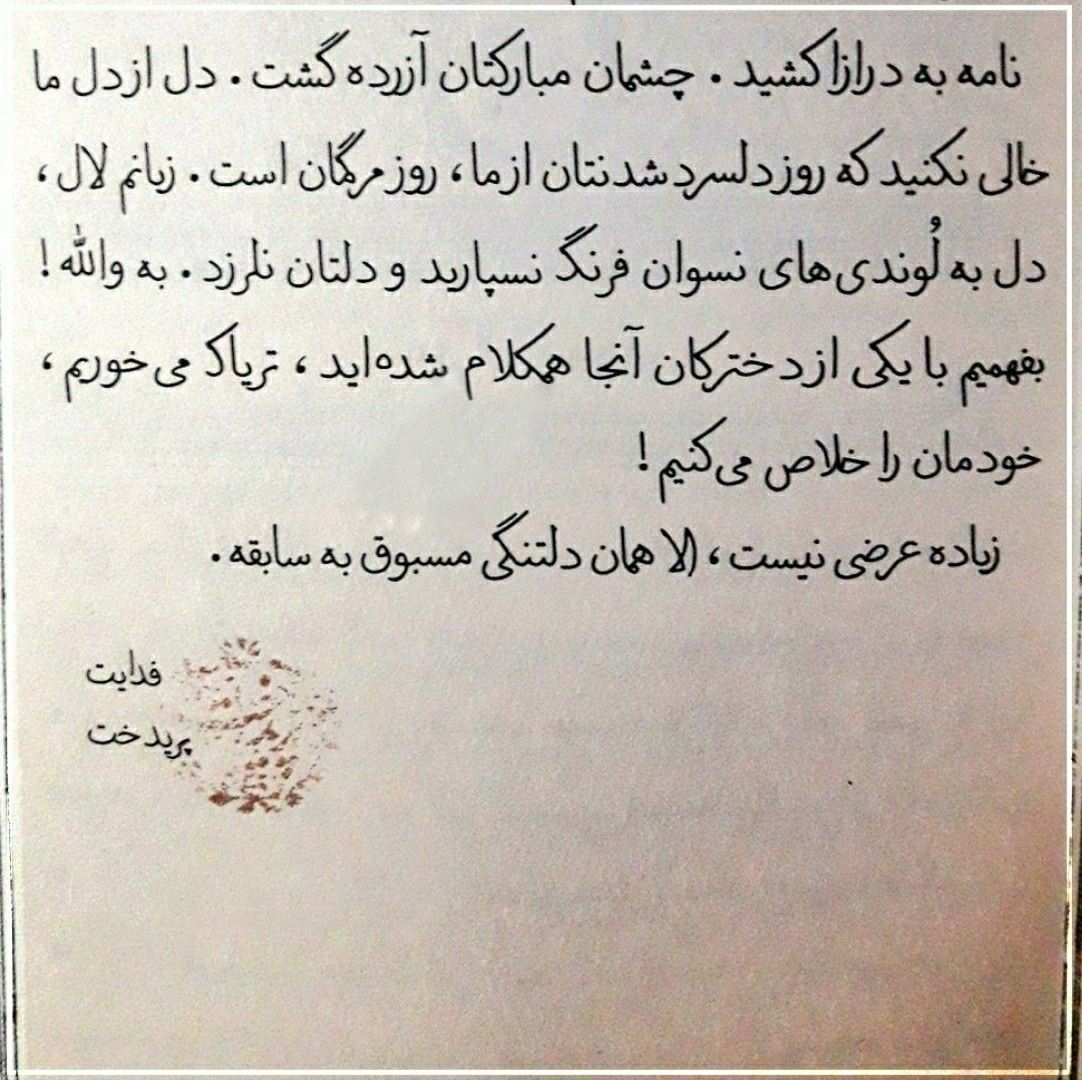 نامه به درازا کشید. چشمان مبارکتان آزرده گشت. دل از دل ما
خالی نکنید که روز دلسرد شدنتان از ما، روز مرگمان است. زبانم لال،
دل به لُوندی‌های نسوان فرنگ نسپارید و دلتان نلرزد. به والله!
بفهمیم با یکی از دخترکان آنجا همکلام شده‌اید، تریاک می‌خوریم،
خودمان را خلاص می‌کنیم!
زیاده عرضی نیست، الا همان دلتنگی مسبوق به سابقه.
فدایت
پریدخت